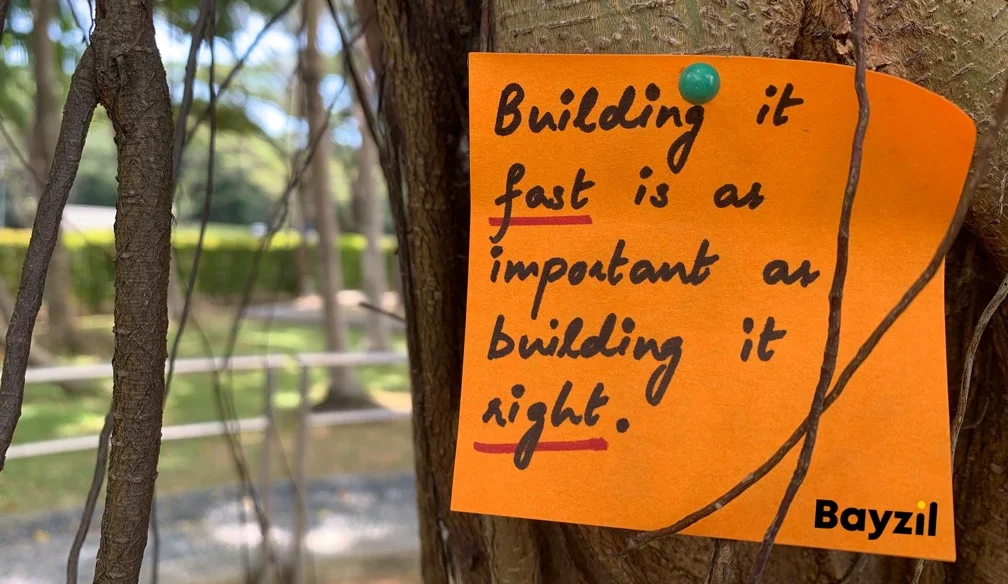 Building it
fast is as
important as
building it
right.
Bayzil